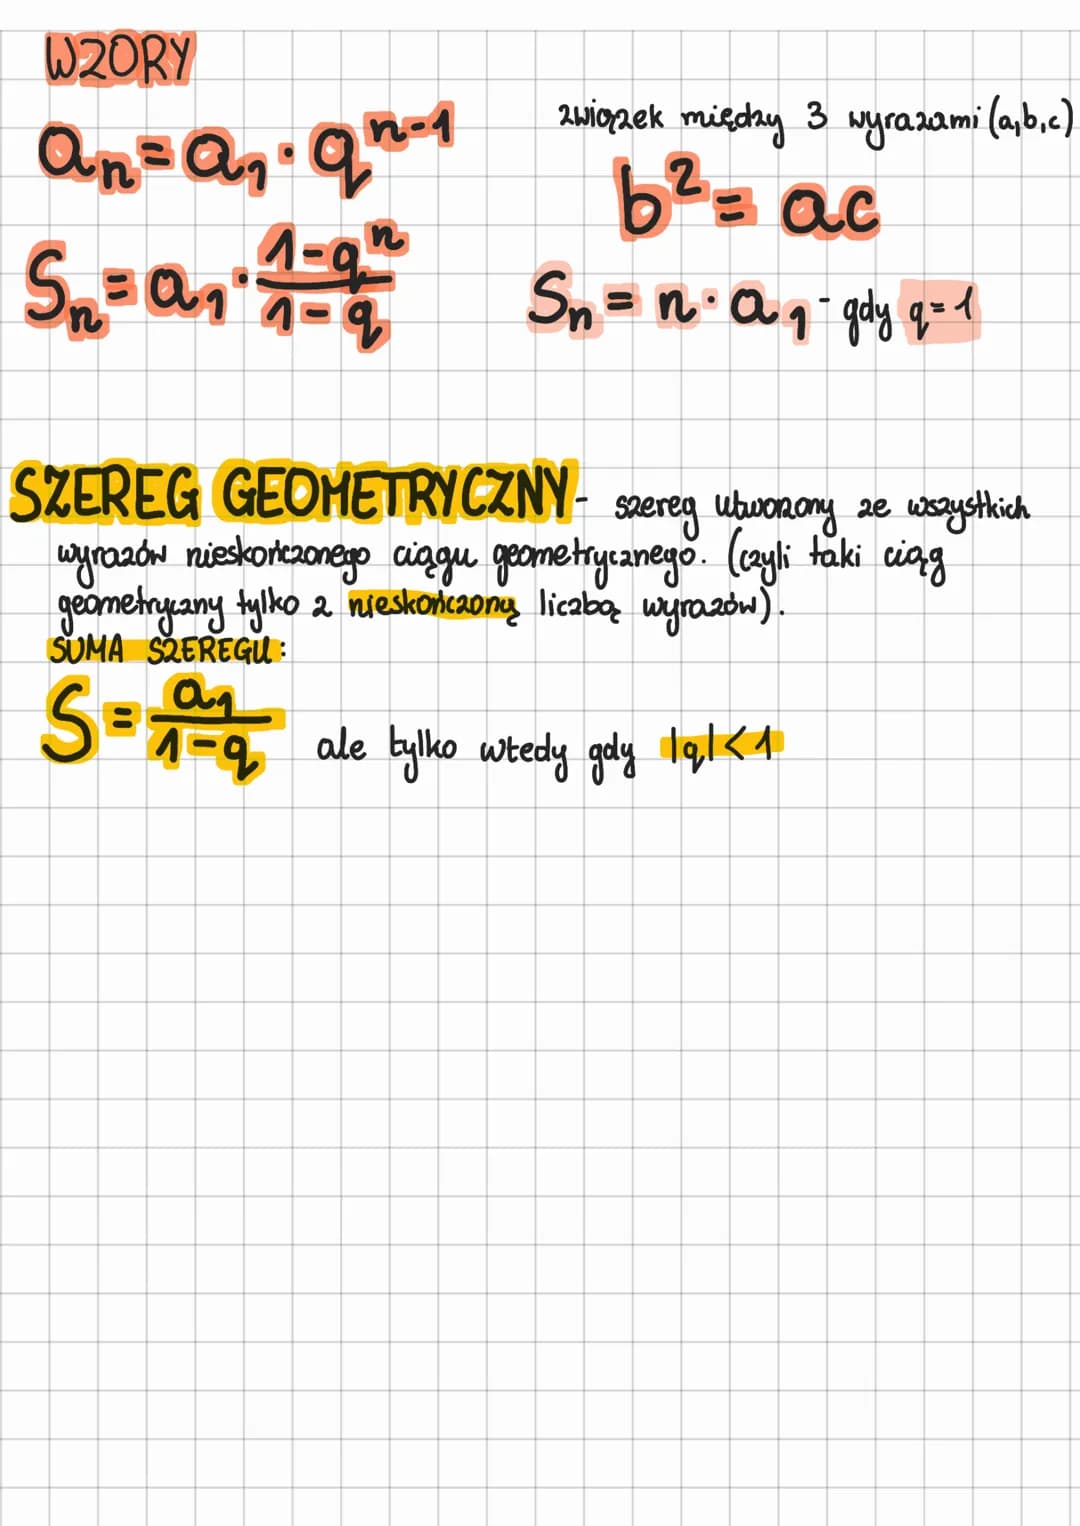 WZORY
aₙ = a₁ · qⁿ⁻¹
Sₙ = a₁ · (1-qⁿ)/(1-q)
związek między 3 wyrazami (a,b,c)
b² = ac
Sₙ = n · a₁ - gdy q = 1
SZEREG GEOMETRYCZNY - szereg utworzony ze wszystkich
wyrazów nieskończonego ciągu geometrycznego. (czyli taki ciąg
geometryczny tylko z nieskończoną liczbą wyrazów).
SUMA SZEREGU:
S = a₁/(1-q) ale tylko wtedy gdy |q| < 1